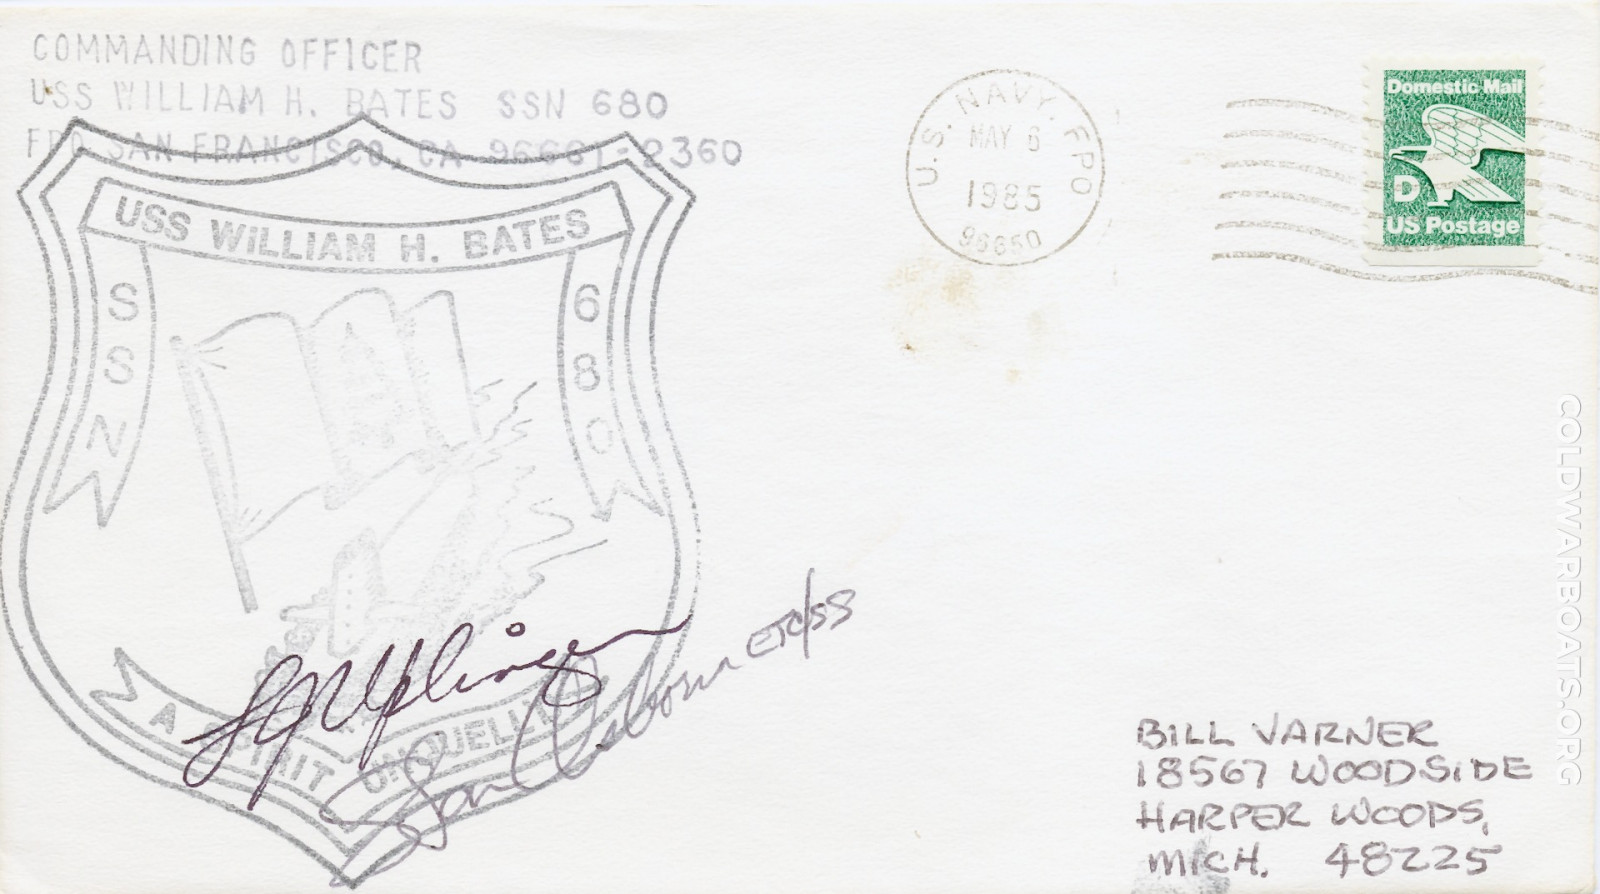 COMMANDING OFFICER
USS WILLIAM H. BATES SSN 680
FPO SAN FRANCISCO, CA 96661-2360
USS WILLIAM H. BATES
SSN
680
A SPIRIT UNQUELLED
U.S. NAVY. FPO
MAY 6
1985
96650
Domestic Mail
D
US Postage
Uplinger
Osborn ETC/SS
BILL VARNER
18567 WOODSIDE
HARPER WOODS,
MICH. 48225
COLDWARBOATS.ORG